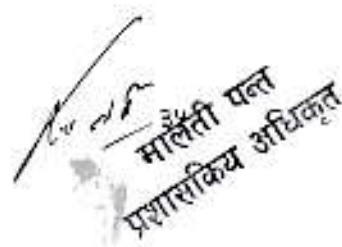 मालती पन्त
प्रशासकिय अधिकृत